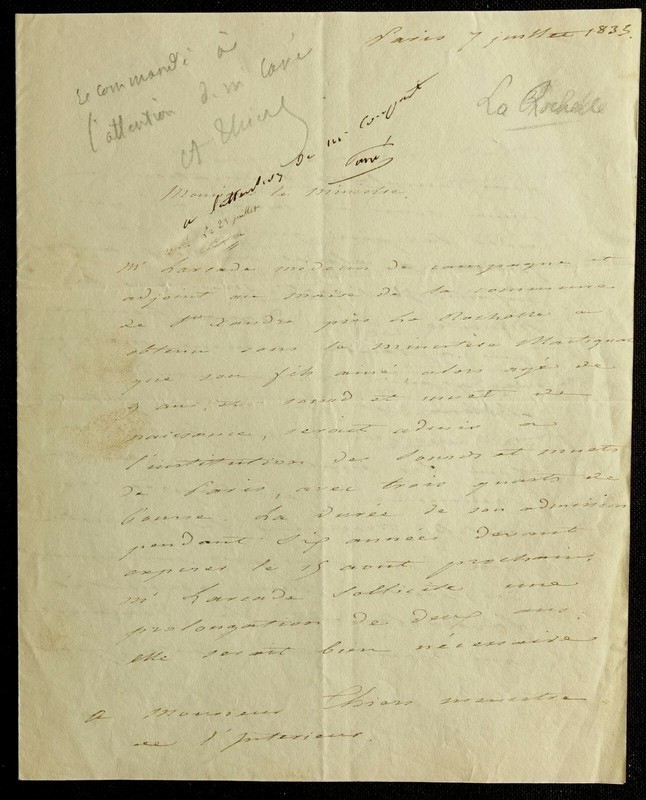 Paris 7 juillet 1835.
recommandé à
l'attention de mr Cavé
A Thiers
La Rochelle
a l'attention de mr
Cavé
Monsieur le ministre.
le 23 juillet
Mr Lacade médecin de campagne et
adjoint au maire de la commune
de Ste Xandre près La Rochelle a
obtenu sous le ministère Martignac
que son fils ainé, alors agé de
9 ans, et sourd et muet de
naissance, serait admis à
l'institution des sourds et muets
de Paris, avec trois quarts de
bourse. La durée de son admission
pendant six années devant
expirer le 15 aout prochain,
mr Lacade sollicite une
prolongation de deux ans.
elle serait bien nécessaire
a Monsieur Thiers ministre
de l'Interieur.